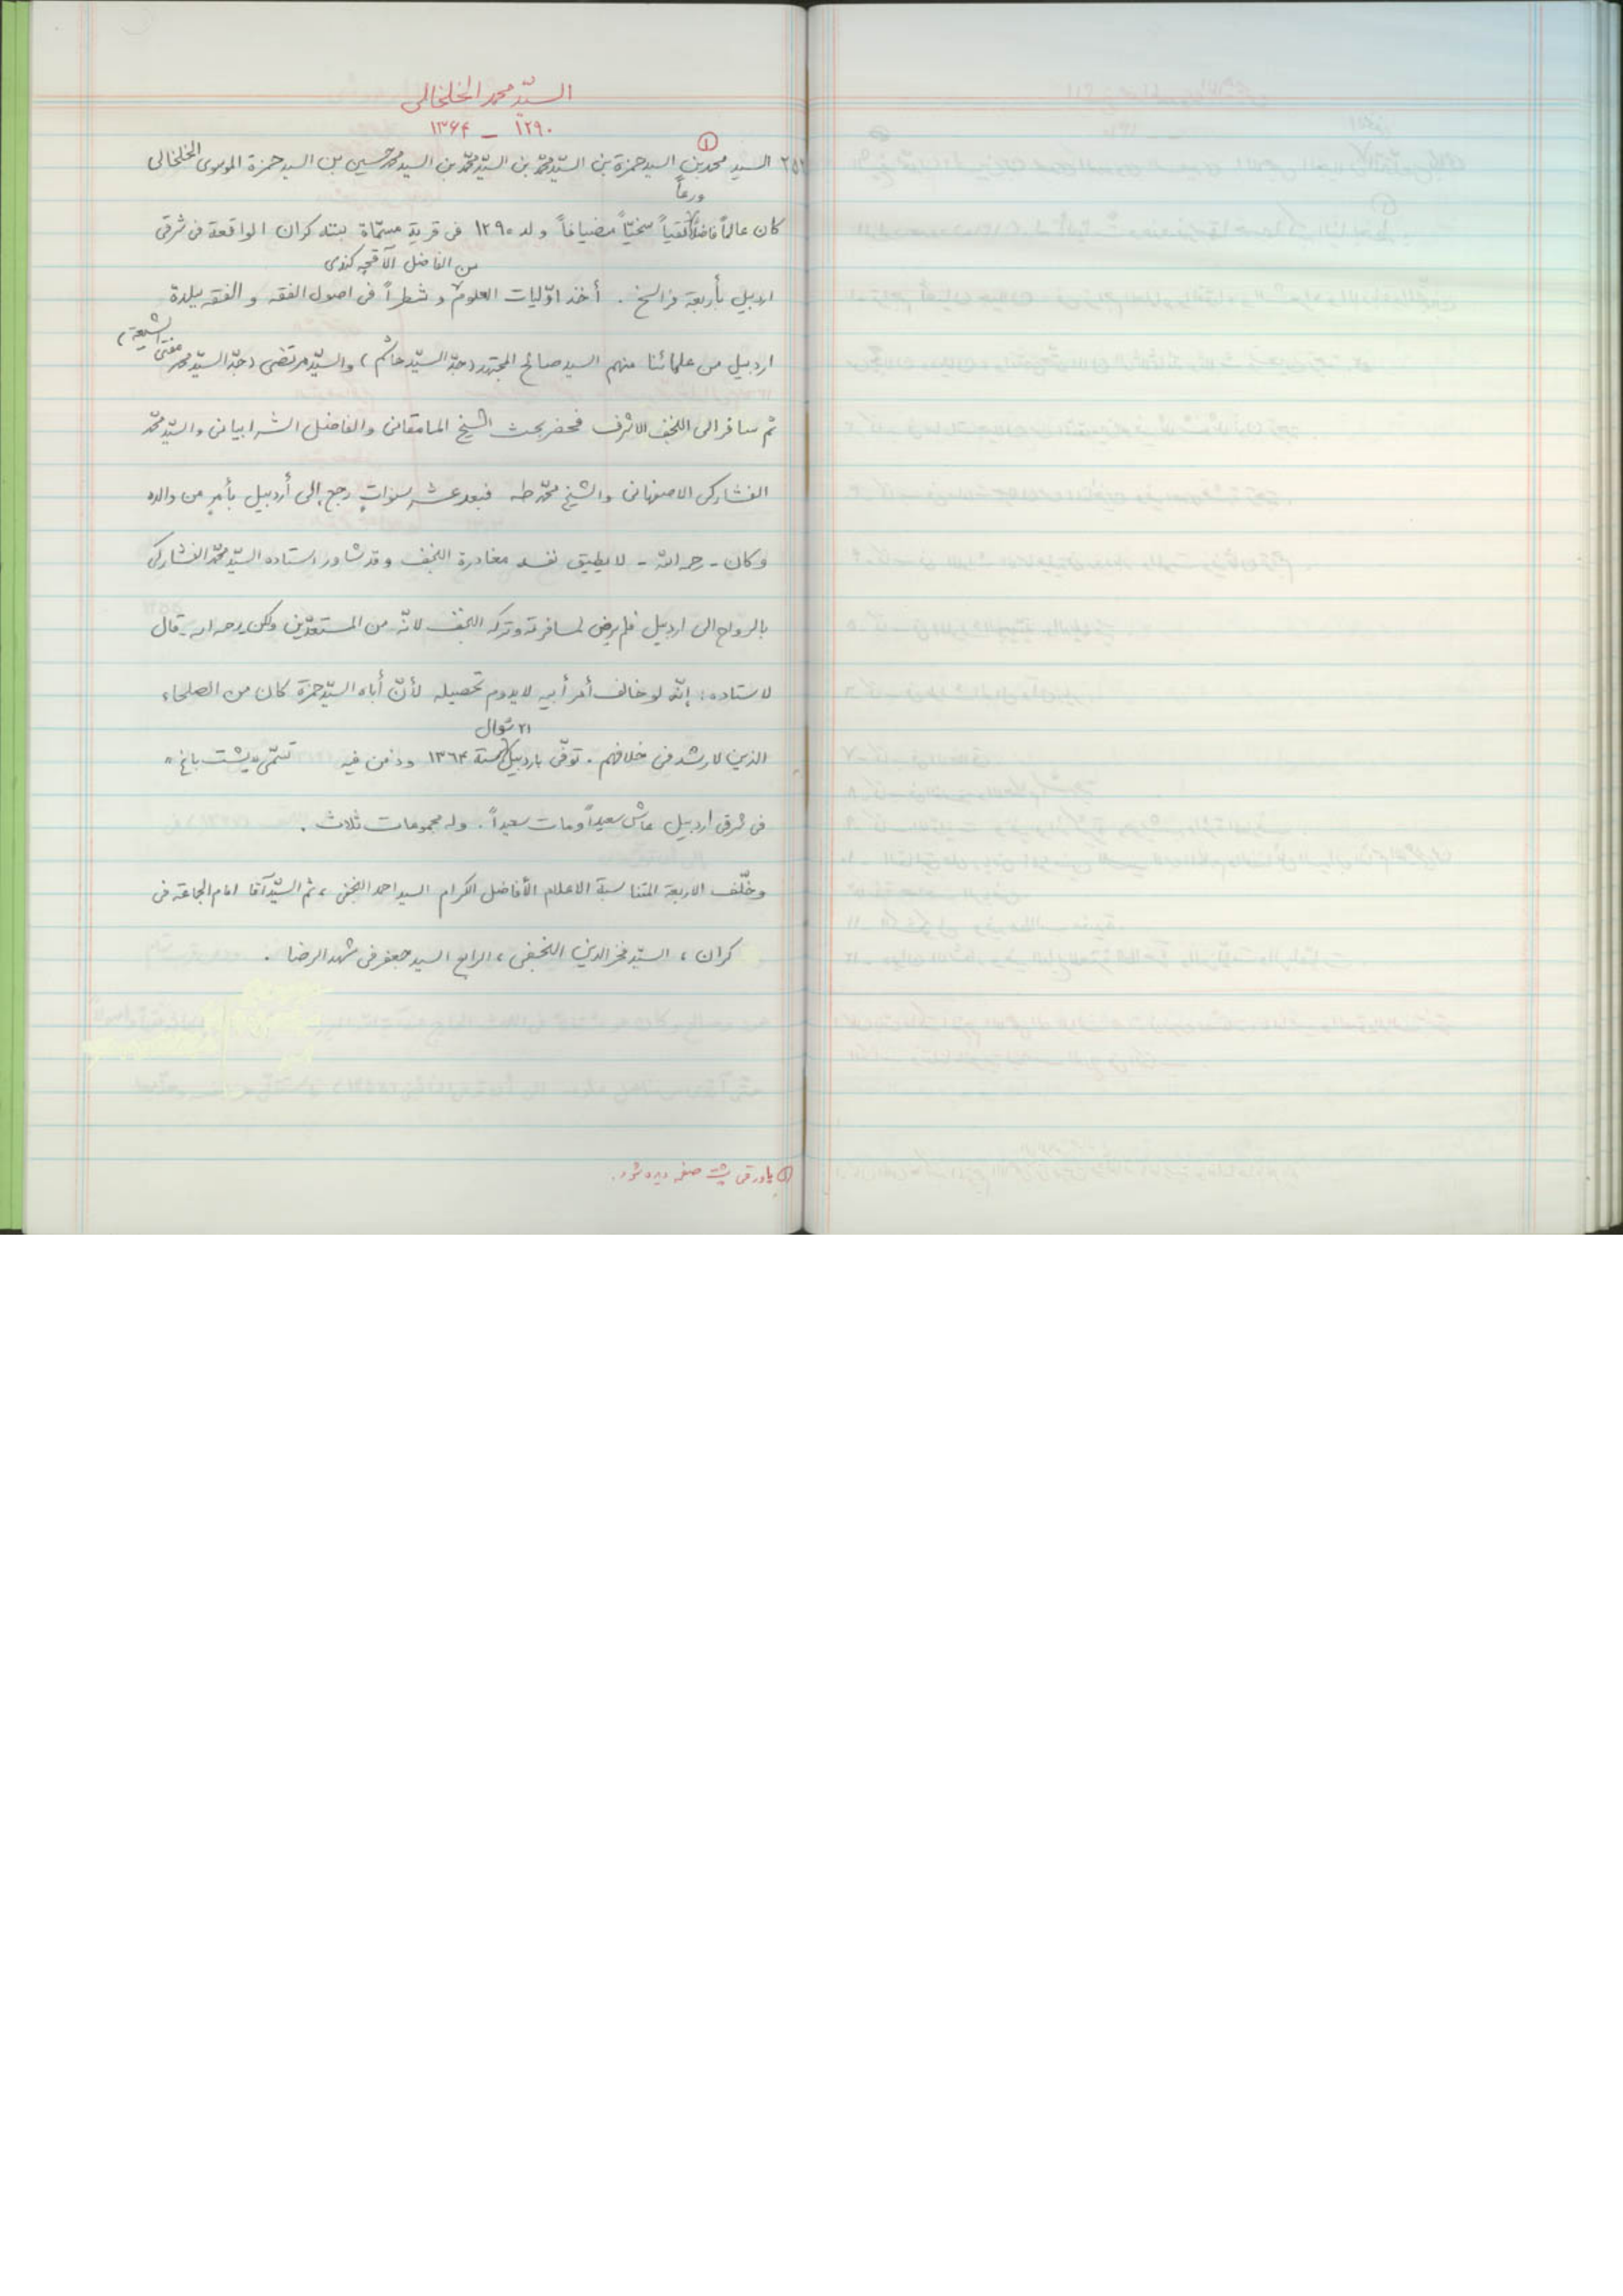 السيّد محمد الخلخالى
١٢٩٠ – ١٣۶۴
السيد محمد بن ① السيد حمزة بن السيّد محمّد بن السيّد محمّد بن السيد محمد حسين بن السيد حمزة الموسوى الخلخالى
كان عالماً فاضلاً ورعاً تقياً سخيّاً مضيافاً ولد ١٢٩٠ فى قرية مسمّاة بتله كران الواقعة فى شرقى
اردبيل بأربعة فراسخ . أخذ اوّليات العلوم من الفاضل الآقچه كندى و شطراً فى اصول الفقه و الفقه ببلدة
اردبيل من علمائنا منهم السيد صالح المجتهد (جدّ السيّد حاتم) والسيّد مرتضى (جدّ السيّد محمد مفتى الشيعة)
ثم سافر الى النجف الاشرف فحضر بحث الشيخ المامقانى والفاضل الشرابيانى والسيّد محمّد
الفشاركى الاصفهانى والشيخ محمّد طه فبعد عشر سنواتٍ رجع إلى أردبيل بأمرٍ من والده
وكان - رحمه الله - لا يطيق نفسه مغادرة النجف وقد شاور استاده السيّد محمّد الفشاركى
بالرواح الى اردبيل فلم يرض لمسافرته وتركه النجف لانّه من المستعدّين ولكن رحمه الله - قال
لاستاده : إنّه لو خالف أمر أبيه لا يدوم تحصيله لأنّ أباه السيّد حمزة كان من الصلحاء
الذين لا رشد فى خلافهم . توفّى باردبيل ٢١ شوال سنة ١٣٦٤ ودفن فيه تسمّى «پشت باغ»
فى شرقى اردبيل عاش سعيداً ومات سعيداً . وله مجموعات ثلاث .
وخلّف الاربعة المتناسبة الاعلام الأفاضل الكرام السيد احمد النجفى ، ثم السيّد آقا امام الجماعة فى
كران ، السيّد فخر الدين النجفى ، الرابع السيد جعفر فى مشهد الرضا .
① پاورقى پشت صفحه ديده شود .